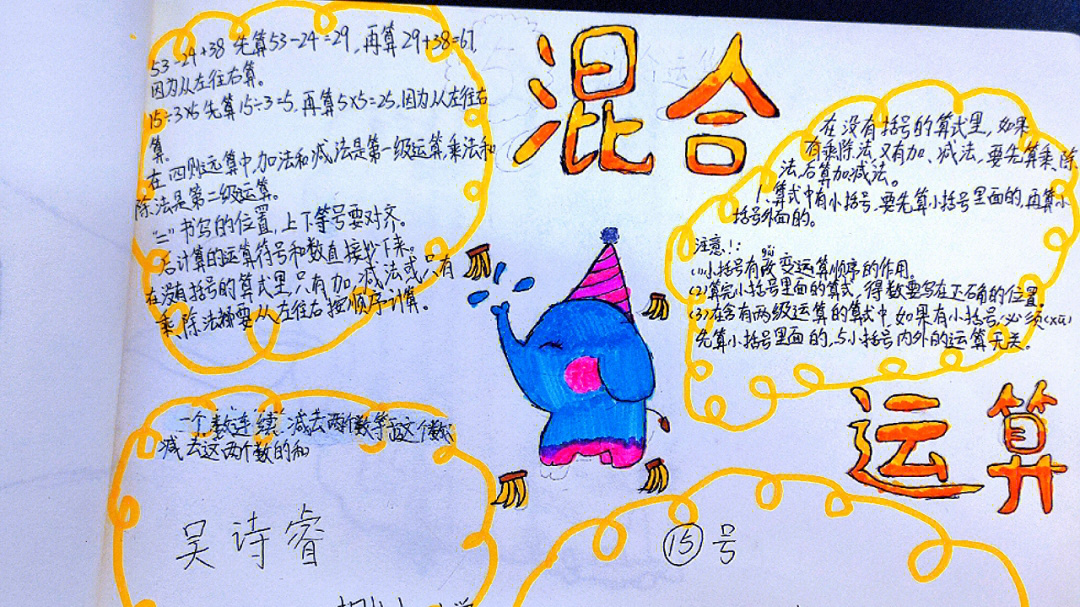 混合
运算
53-24+38 先算53-24=29,再算29+38=67,
因为从左往右算。
15÷3×5 先算15÷3=5,再算5×5=25,因为从左往右
算。
在四则运算中,加法和减法是第一级运算,乘法和
除法是第二级运算。
"="书写的位置,上下等号要对齐。
后计算的运算符号和数直接抄下来。
在没有括号的算式里,只有加、减法或只有
乘、除法都要从左往右按顺序计算。
在没有括号的算式里,如果
有乘、除法,又有加、减法,要先算乘、除
法,后算加减法。
算式中有小括号,要先算小括号里面的,再算小
括号外面的。
注意!:
(1)小括号有改变运算顺序的作用。
(2)算完小括号里面的算式,得数要写在下面的位置。
(3)在含有两级运算的算式中,如果有小括号,必须(xū)
先算小括号里面的,与小括号内外的运算无关。
一个数连续减去两个数等于这个数
减去这两个数的和
吴诗睿
15号